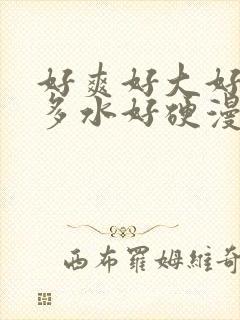 好爽好大好
多水好硬漫
西布羅姆維奇